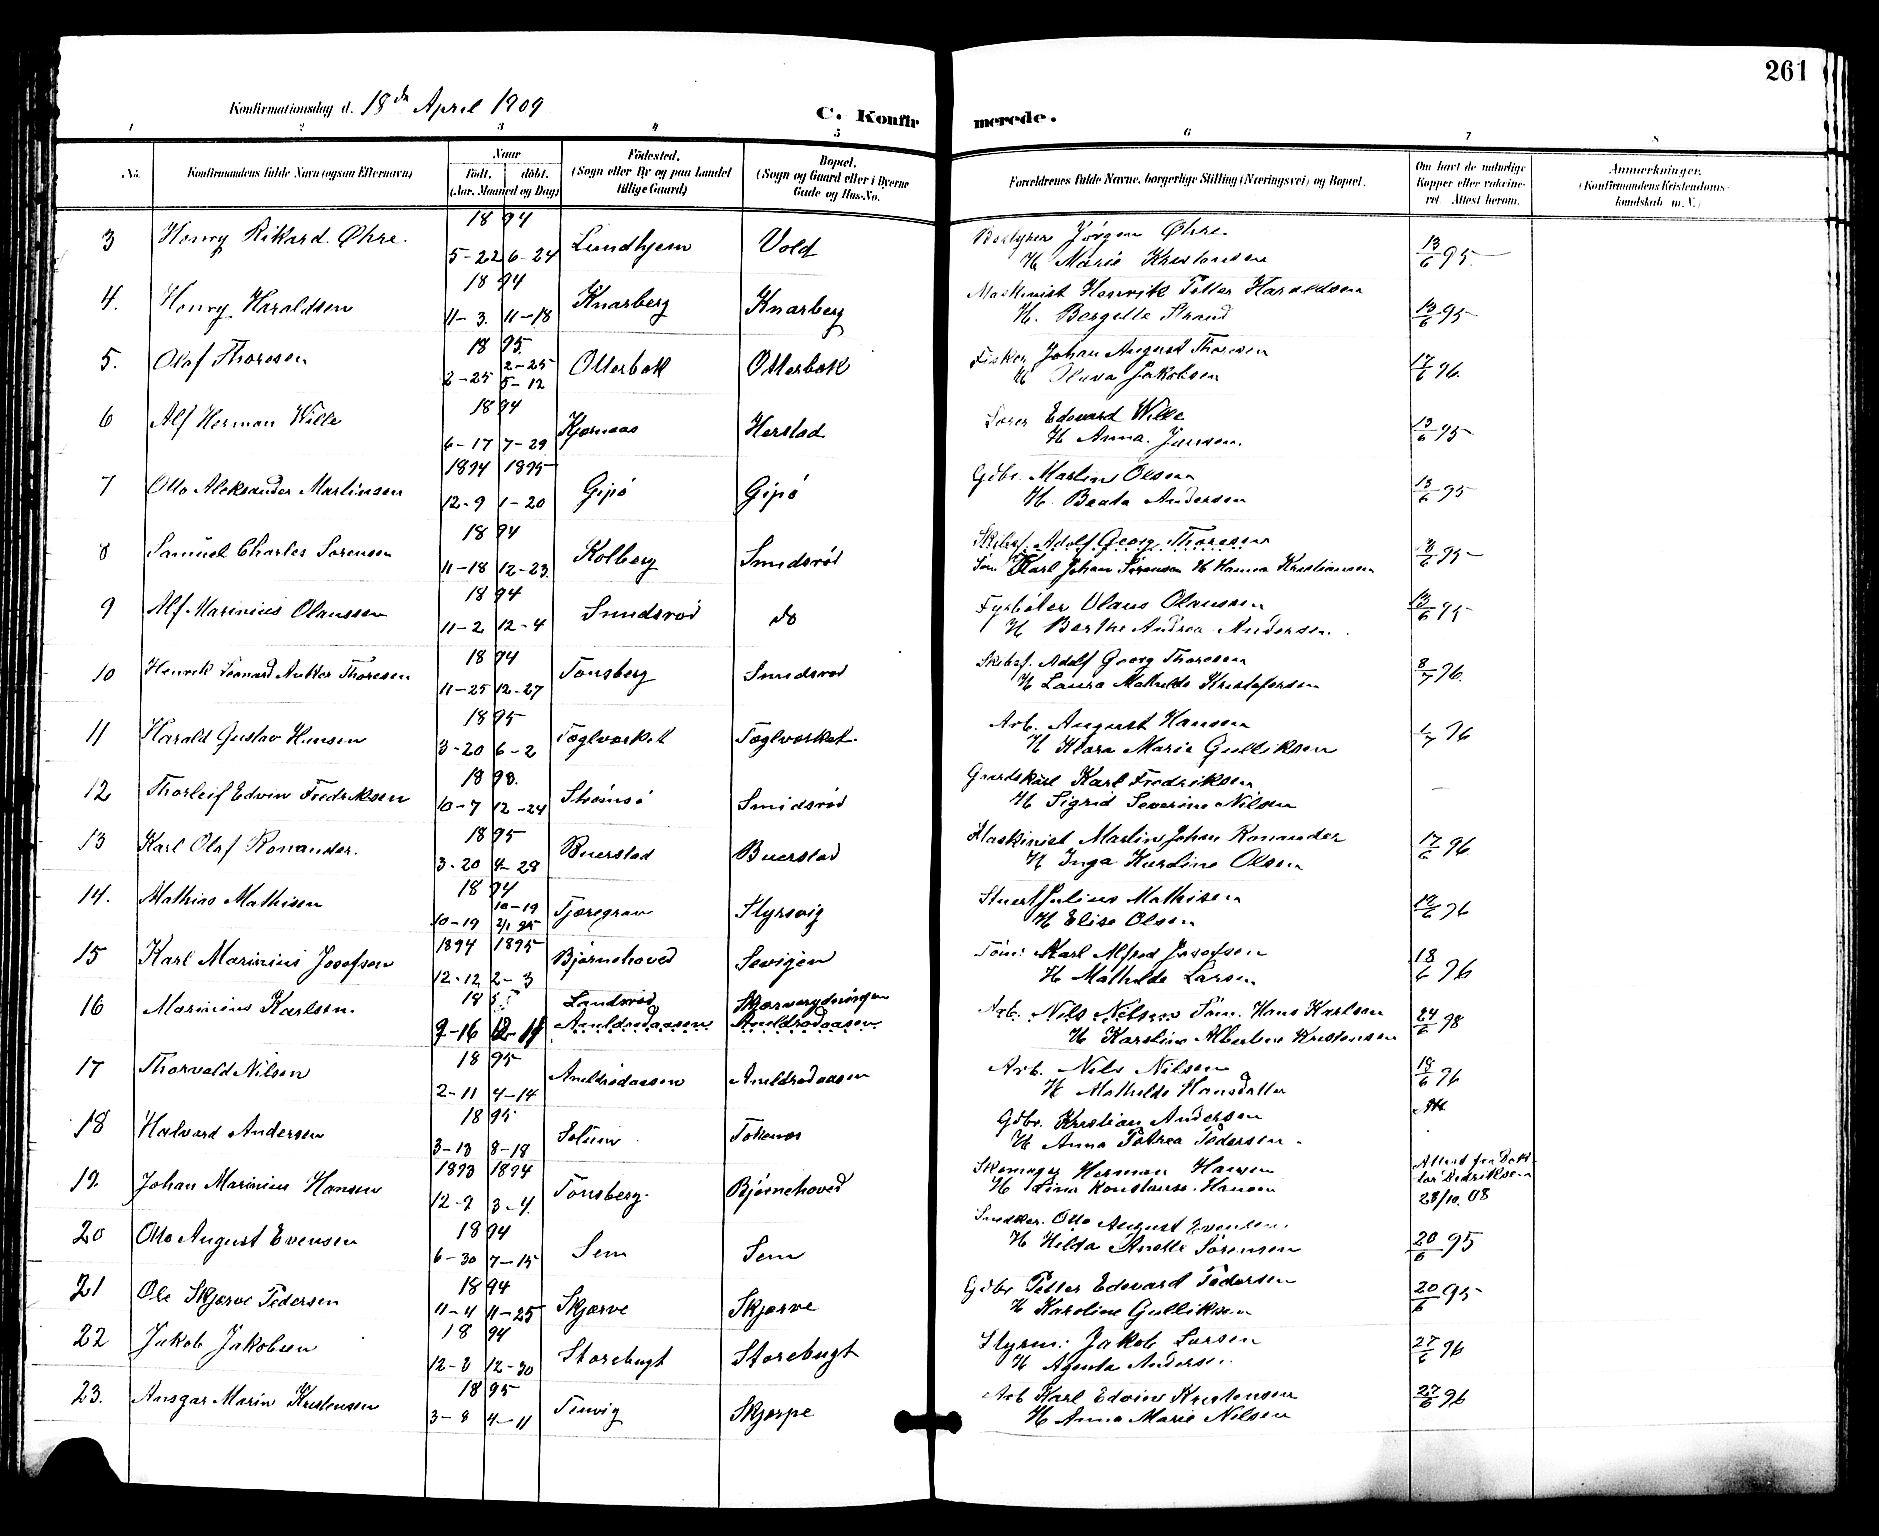 261
Konfirmationsdag d. 18de April 1909
C. Konfir merede.
1 2 3 4 5 6 7 8
No. Konfirmandens fulde Navn (ogsaa Efternavn) Naar Födt. döbt. (Aar, Maaned og Dag) Födested. (Sogn eller By og paa Landet tillige Gaard) Bopæl. (Sogn og Gaard eller i Byerne Gade og Hus-No. Forældrenes fulde Navne, borgerlige Stilling (Næringsvei) og Bopæl. Om havt de naturlige Kopper eller vakcineret. Attest herom. Anmerkninger. (Konfirmandens Kristendomskundskab m. V.)
18 94
3 Henry Rikard Øhre. 5-22 6-24 Lundhjem Vold Bestyrer Jörgen Øhre.
H Marie Kristensen 13/6 95
18 94
4. Henry Haraldsen 11-3. 11-18 Knarberg Knarberg Maskinist Henrik Petter Haraldsen
H. Bergette Strand 13/6 95
18 95.
5. Olaf Thoresen 2-25 2-25 5-12 Otterbæk Otterbæk Fisker Johan August Thoresen
H Oluva Jakobsen 17/6 96.
18 94
6 Alf Herman Wille 6-17 7-29 Kjærnaas Herstad Lærer Edevard Wille
H Anna Jansen. 13/6 95
1894 1895
7 Otto Aleksander Martinsen 12-9 1-20 Gipö Gipö Gdbr. Martin Olsen
H. Beata Andersen 13/6 95
18 94
8 Samuel Charles Sørensen 11-18 12-23. Kolberg Smidsröd Skibsf. Adolf Georg Thoresen
Töm Karl Johan Sörensen H Hanna Kristiansen 95
18 94
9 Alf Marinius Olaussen 11-2 12-4 Smidsröd do Fyrböter Olaus Olaussen
H Berthe Andrea Andersen. 13/6 95
18 94
10 Henrik Leonard Anker Thoresen 11-25 12-27 Tönsberg Smidsröd Skibsf. Adolf Georg Thoresen
H Laura Mathilde Kristofersen 8/7 96.
18 95
11 Harald Gustav Hansen 3-20 6-2 Teglværket Teglværket Arb. August Hansen
H Klara Marie Gulliksen 96
18 93.
12 Thorleif Edvin Fredriksen 10-7 12-24 Strömsö Smidsröd Gaardskarl Karl Fredriksen
H Sigrid Severine Nilsen —
18 95
13 Karl Olaf Ronander. 3-20 4-28 Buerstad Buerstad Maskinist Martin Johan Ronander
H Inga Karoline Olsen 17/6 96
18 94
14. Mathias Mathisen 10-19 10-19 Tjæregrav Styrsvig Stuert Julius Mathisen
H Elise Olsen 96
1894 1895
15 Karl Marinius Josefsen 12-12 2-3 Björnehoved Sevigen Töm: Karl Alfred Josefsen
H Mathilde Larsen 18/6 96
18
16 Marinius Karlsen. 9-16 Landsröd Skjærsrydningen
Amlrödaasen Amlrödaasen Arb. Nils Nilsen Töm. Hans Karlsen
H Karoline Albertine Kristensen 24/6 98
18 95
17 Thorvald Nilsen 2-11 4-14 Amlrödaasen Amlrödaasen Arb. Nils Nilsen
H Mathilde Hansdatter 18/6 96
18 95
18 Halvard Andersen 3-13 8-18 Solum Tokenes Gdbr. Kristian Andersen
H Anna Petrea Pedersen.
1893 1894
19 Johan Marinius Hansen 12-2 3-4. Tönsberg. Björnehoved Skomager Herman Hansen
H Lina Konstanse Hansen Attest fra Doktor Didriksen 28/10. 08
18 94
20 Otto August Evensen 6-30 7-15 Sem Sem Snedker. Otto August Evensen.
H Hilda Anette Sörensen 20/6 95
18 94
21 Ole Skjærve Pedersen 11-4 11-25 Skjærve Skjærve Gdbr Petter Edevard Pedersen
H Karoline Gulliksen 20/6 95
18 94
22 Jakob Jakobsen 12-3 12-30 Storebugt Storebugt Styrm: Jakob Larsen
H Agenta Andersen 27/6 96
18 95
23. Ansgar Marin Kristensen 3-8 4-11 Tinvig Skjærpe Arb Karl Edvin Kristensen
H Anna Marie Nilsen 27/6 96